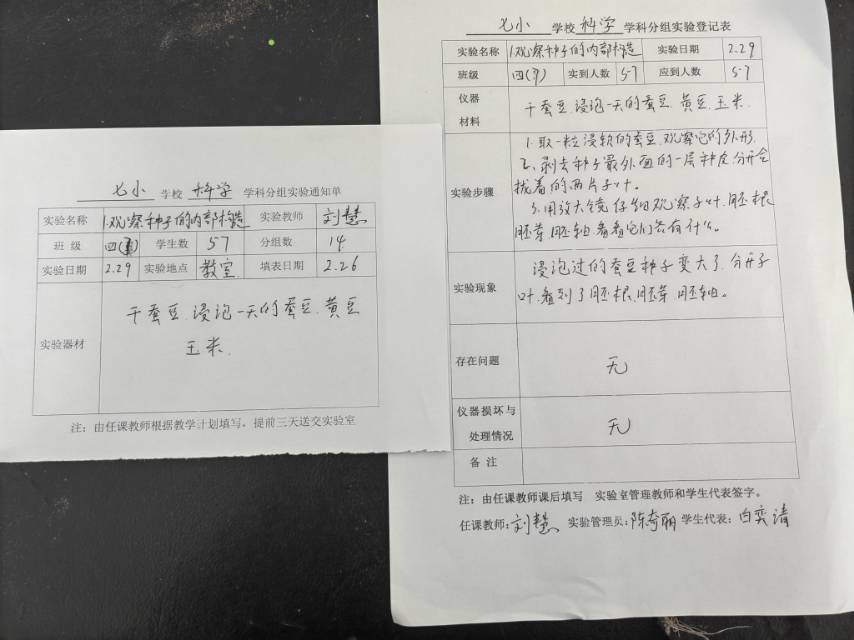 七小 学校 科学 学科分组实验通知单
实验名称 1.观察种子的内部构造 实验教师 刘慧
班 级 四( ) 学生数 57 分组数 14
实验日期 2.29 实验地点 教室 填表日期 2.26
实验器材 干蚕豆.浸泡一天的蚕豆.黄豆
玉米.
注：由任课教师根据教学计划填写，提前三天送交实验室
七小 学校 科学 学科分组实验登记表
实验名称 1.观察种子的内部构造 实验日期 2.29
班级 四( ) 实到人数 57 应到人数 57
仪器
材料 干蚕豆.浸泡一天的蚕豆.黄豆.玉米.
实验步骤
1.取一粒浸软的蚕豆.观察它的外形.
2.剥去种子最外面的一层种皮.分开合
拢着的两片子叶.
3.用放大镜仔细观察子叶.胚根
胚芽.胚轴.看看它们各有什么。
实验现象
浸泡过的蚕豆种子变大了.分开子
叶.看到了胚根.胚芽.胚轴。
存在问题 无
仪器损坏与
处理情况 无
备 注
注：由任课教师课后填写 实验室管理教师和学生代表签字。
任课教师:刘慧 实验管理员:陈奇丽 学生代表: 白奕清